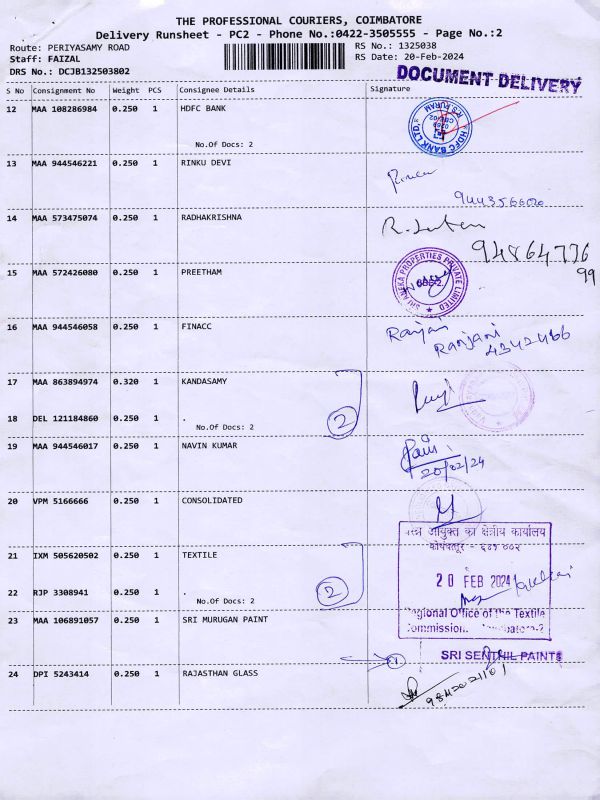 THE PROFESSIONAL COURIERS, COIMBATORE
Delivery Runsheet - PC2 - Phone No.:0422-3505555 - Page No.:2
Route: PERIYASAMY ROAD
RS No.: 1325038
Staff: FAIZAL
RS Date: 20-Feb-2024
DRS No.: DCJB132503802
DOCUMENT DELIVERY
S No Consignment No Weight PCS Consignee Details Signature
12 MAA 108286984 0.250 1 HDFC BANK
No.Of Docs: 2
HDFC BANK LTD. R S PURAM
13 MAA 944546221 0.250 1 RINKU DEVI
14 MAA 573475074 0.250 1 RADHAKRISHNA
94864776
99
15 MAA 572426080 0.250 1 PREETHAM
PROPERTIES PRIVATE LIMITED
16 MAA 944546058 0.250 1 FINACC
Ranjani
Ranjani
17 MAA 863894974 0.320 1 KANDASAMY
18 DEL 121184860 0.250 1 .
No.Of Docs: 2
2
19 MAA 944546017 0.250 1 NAVIN KUMAR
20/02/24
20 VPM 5166666 0.250 1 CONSOLIDATED
21 IXM 505620502 0.250 1 TEXTILE
आयुक्त का क्षेत्रीय कार्यालय
20 FEB 2024
22 RJP 3308941 0.250 1 .
No.Of Docs: 2
2
Regional Office of the Textile
23 MAA 106891057 0.250 1 SRI MURUGAN PAINT
SRI SENTHIL PAINTS
24 DPI 5243414 0.250 1 RAJASTHAN GLASS